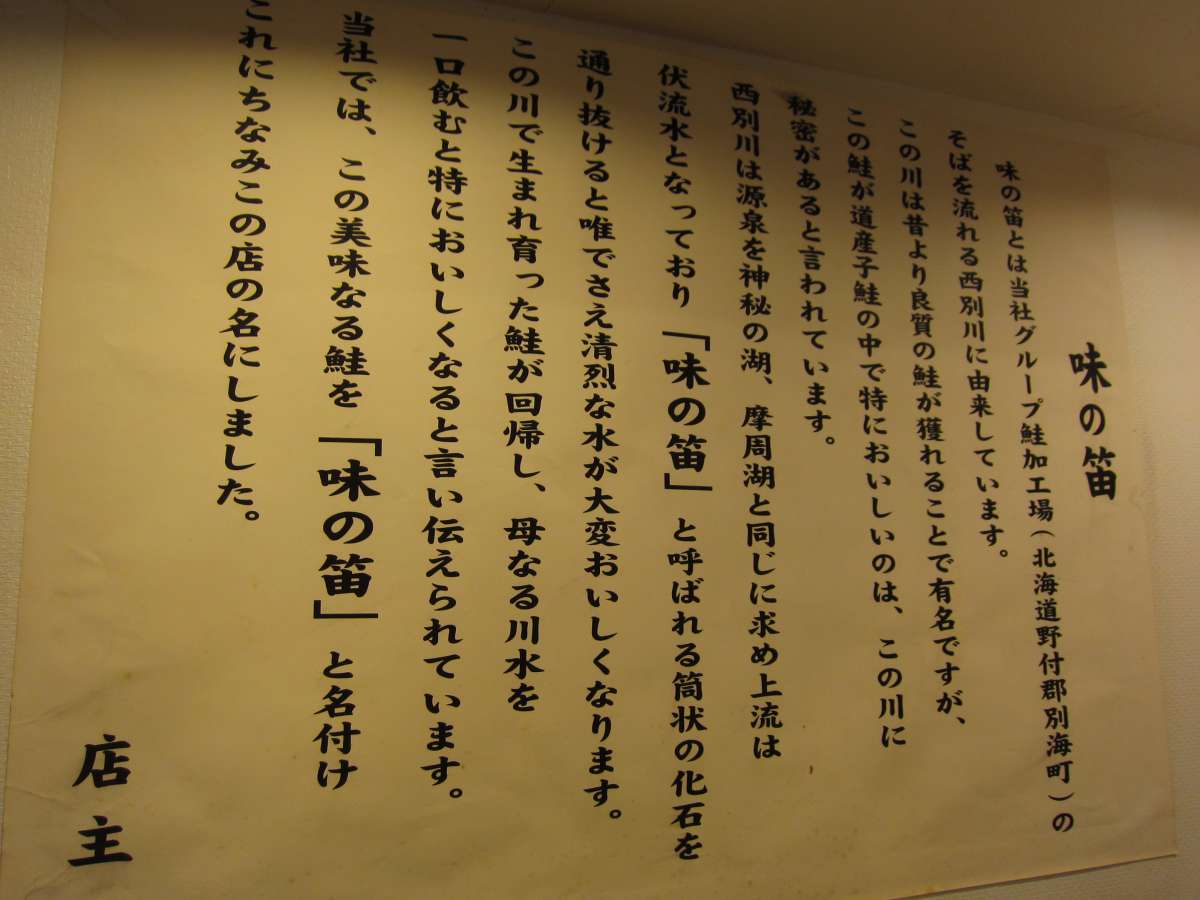 味の笛
味の笛とは当社グループ鮭加工場（北海道野付郡別海町）の
そばを流れる西別川に由来しています。
この川は昔より良質の鮭が獲れることで有名ですが、
この鮭が道産子鮭の中で特においしいのは、この川に
秘密があると言われています。
西別川は源泉を神秘の湖、摩周湖と同じに求め上流は
伏流水となっており「味の笛」と呼ばれる筒状の化石を
通り抜けると唯でさえ清烈な水が大変おいしくなります。
この川で生まれ育った鮭が回帰し、母なる川水を
一口飲むと特においしくなると言い伝えられています。
当社では、この美味なる鮭を「味の笛」と名付け
これにちなみこの店の名にしました。
店主